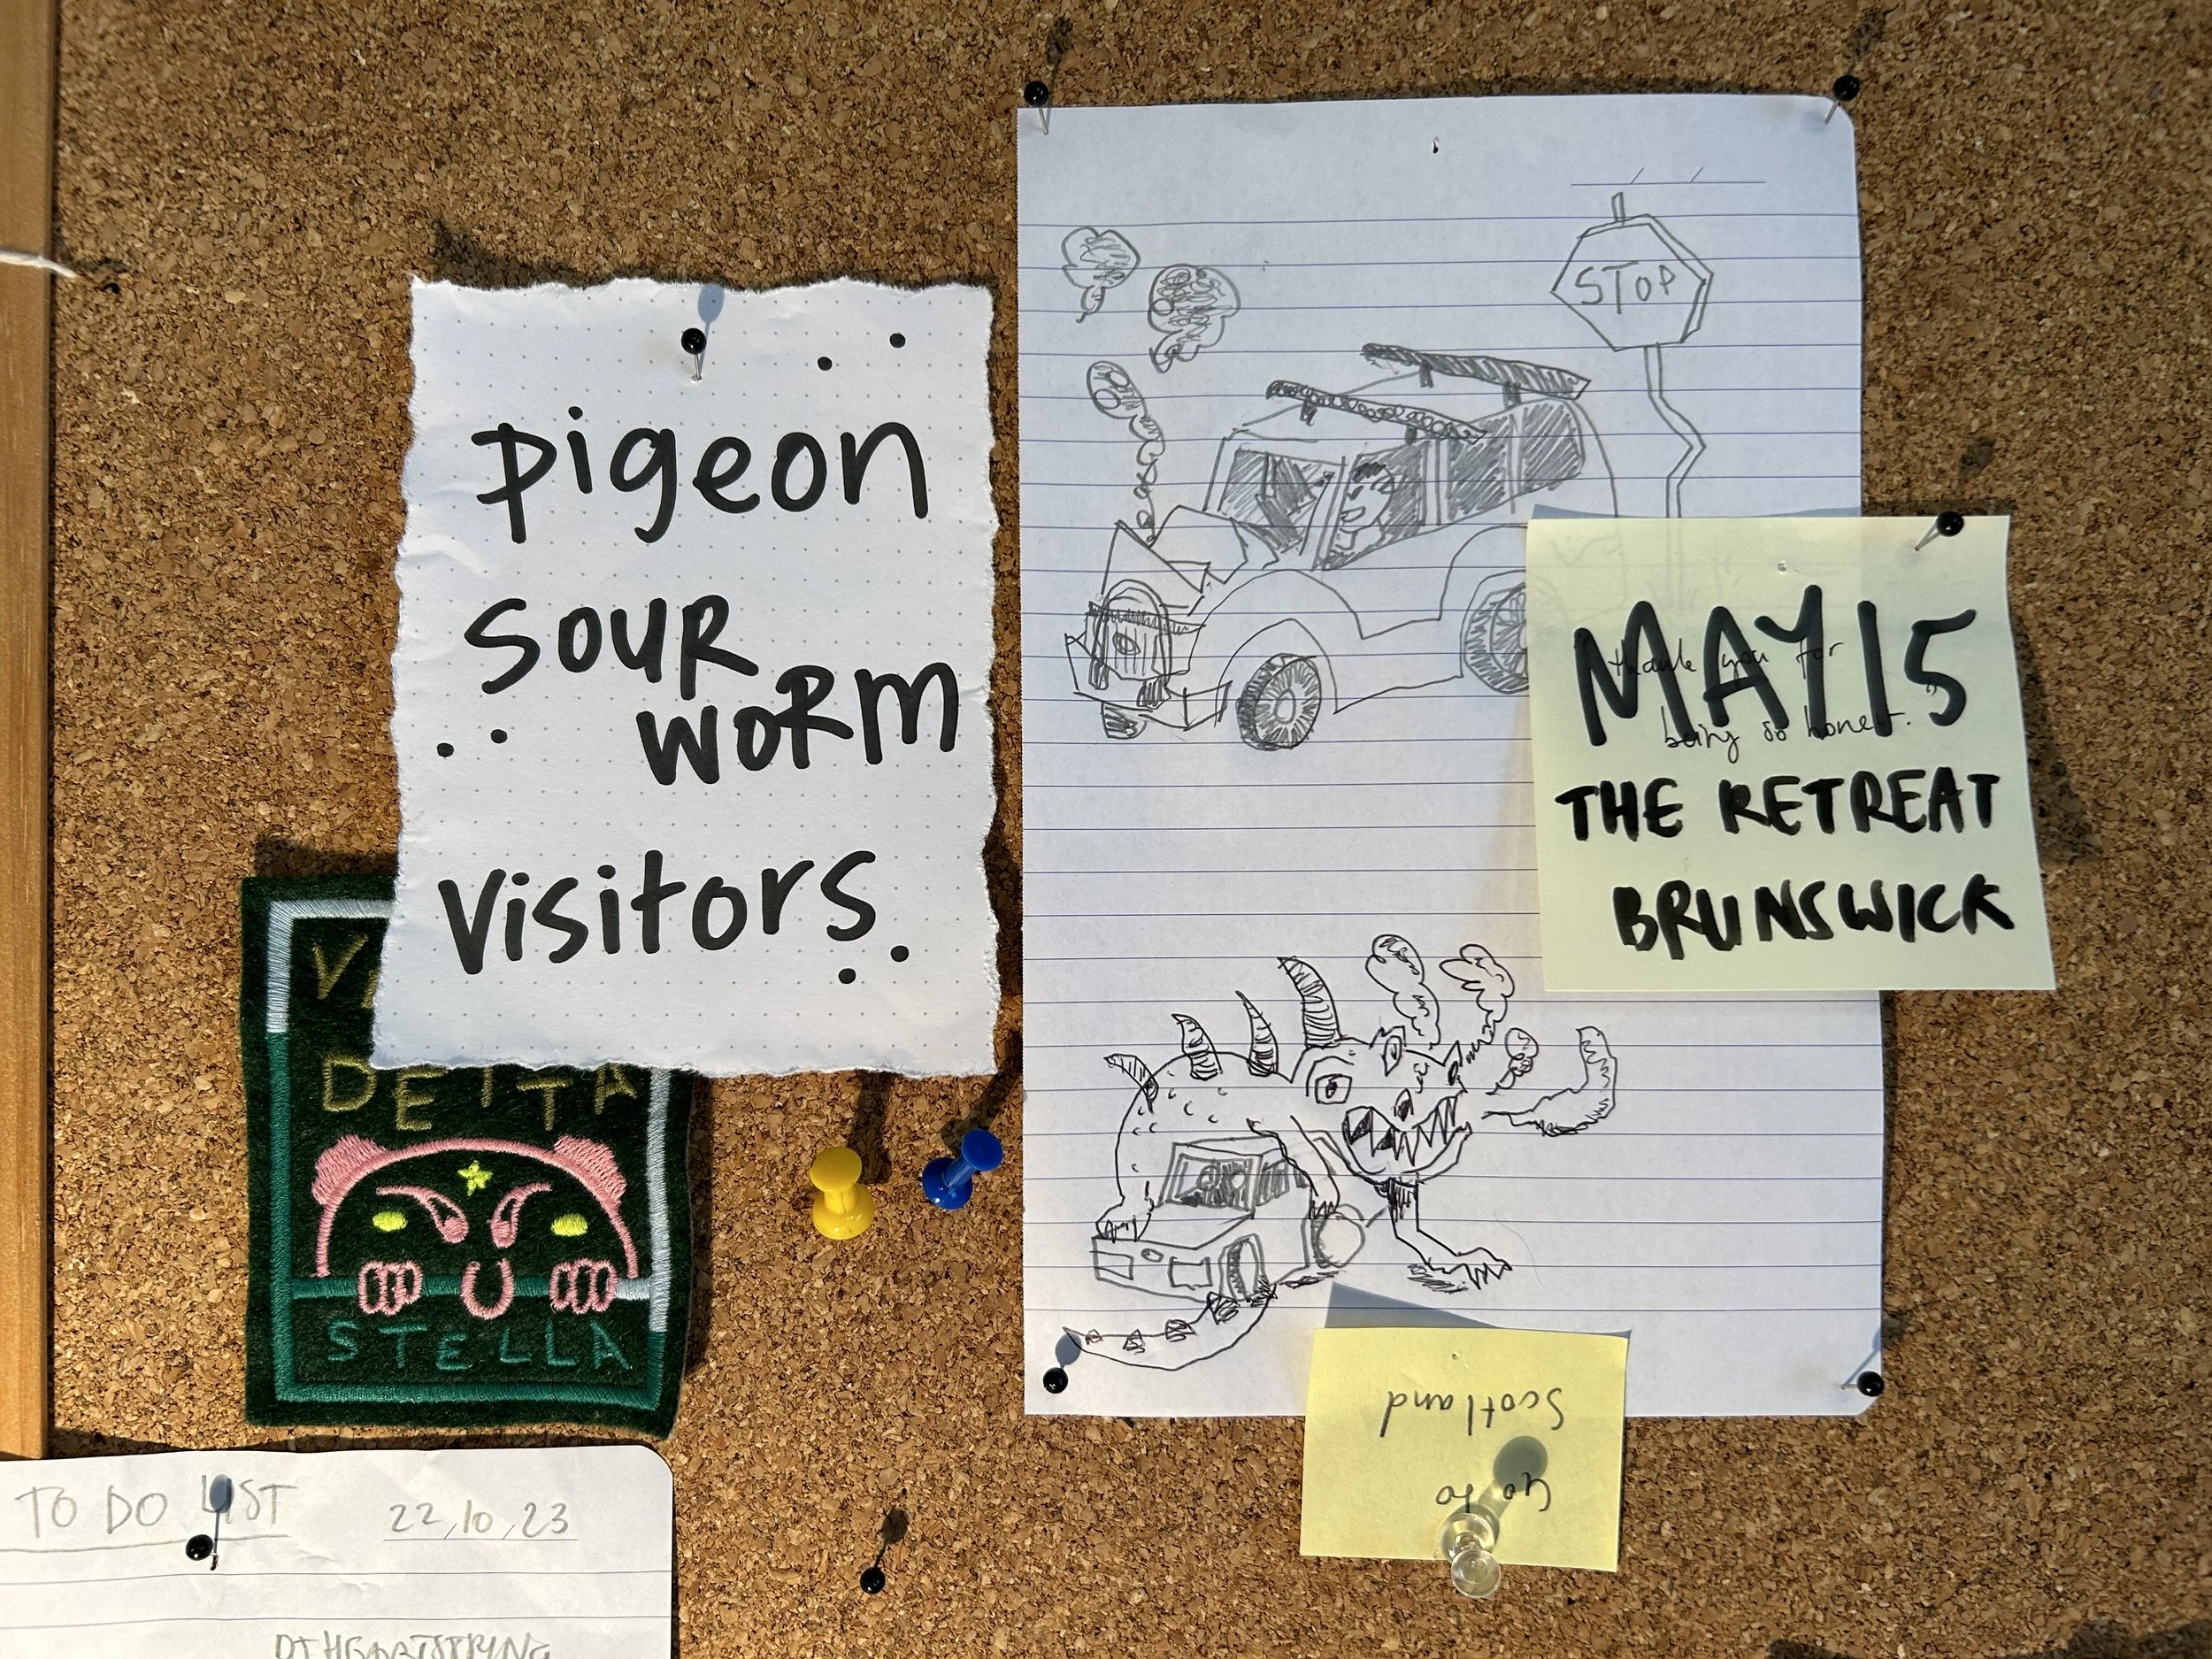 pigeon
SOUR
WORM
visitors.
STOP
MAY 15
thank you for
being so honest.
THE RETREAT
BRUNSWICK
DELTA
STELLA
Go to
Scotland
TO DO LIST 22/10/23